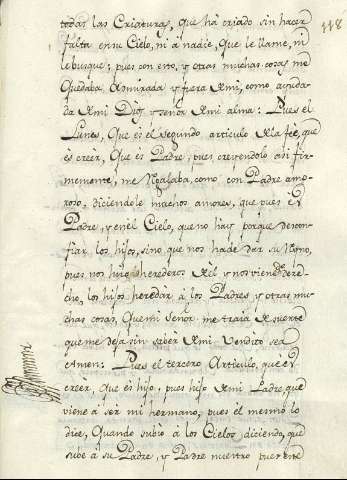 118
todas las Criaturas, que ha criado sin hacer
falta en su Cielo, ni à nadie, Que le llame, ni
le busque; pues con esto, y otras muchas cosas me
Quedaba, Admirada, y fuera de mi, como ayuda-
da de mi Dios, y señor de mi alma: Pues el
Lunes, Que es el segundo articulo de la fee, que
es creer, Que es Padre, pues creyendolo asi fir-
memente, me Regalaba, como con Padre amo-
roso, diciendole muchos amores, que pues es
Padre, y en el Cielo, que no hay porque descon-
fiar los hijos, sino que nos hade dar su Reyno,
pues nos hijo herederos de el y nos viene de dere-
cho, los hijos heredar à los Padres, y otras mu-
chas cosas, Que mi Señor me traia de suerte
que me deja sin saber de mi vendito sea
Amen: Pues el tercero Articulo, que es
creer, Que es hijo, pues hijo de mi Padre, que
viene a ser mi hermano, pues el mesmo lo
dice, Quando subio à los Cielos diciendo, que
sube à su Padre, y Padre nuestro pues